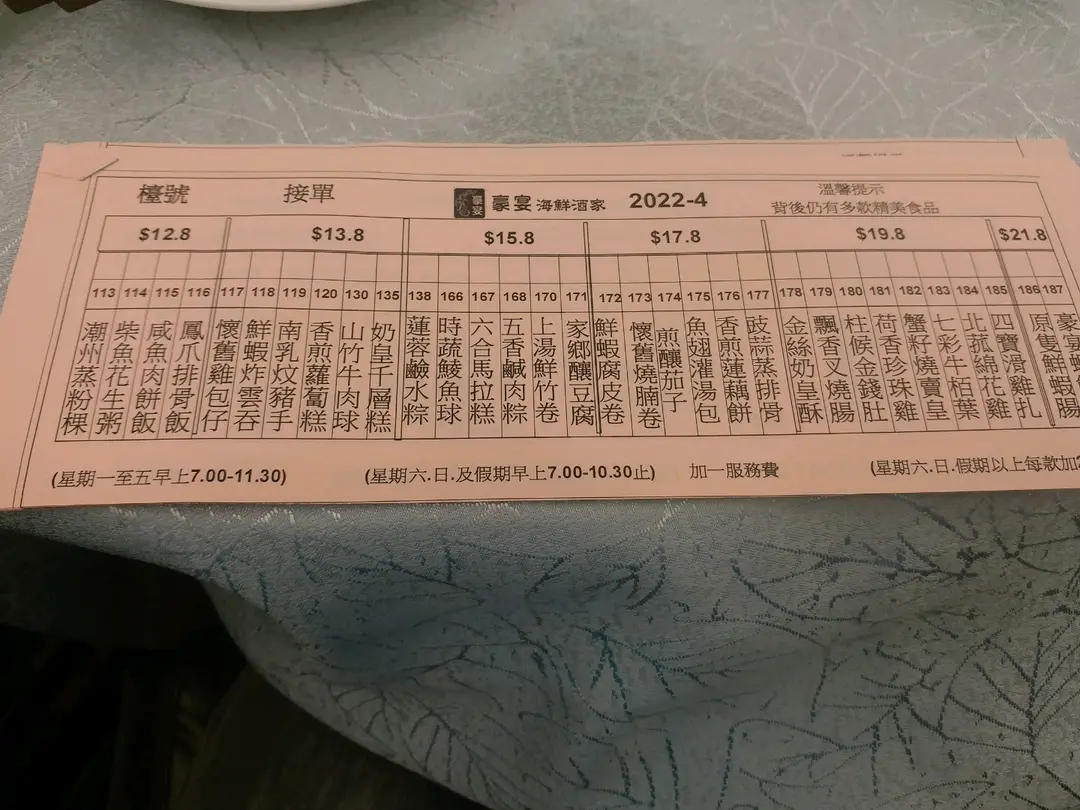 檯號 接單 豪宴 豪宴 海鮮酒家 2022-4 溫馨提示
背後仍有多款精美食品
$12.8 $13.8 $15.8 $17.8 $19.8 $21.8
113 114 115 116 117 118 119 120 130 135 138 166 167 168 170 171 172 173 174 175 176 177 178 179 180 181 182 183 184 185 186 187
潮州蒸粉粿
柴魚花生粥
咸魚肉餅飯
鳳爪排骨飯
懷舊雞包仔
鮮蝦炸雲吞
南乳炆豬手
香煎蘿蔔糕
山竹牛肉球
奶皇千層糕
蓮蓉鹼水粽
時蔬鯪魚球
六合馬拉糕
五香鹹肉粽
上湯鮮竹卷
家鄉釀豆腐
鮮蝦腐皮卷
懷舊燒腩卷
煎釀茄子
魚翅灌湯包
香煎蓮藕餅
豉蒜蒸排骨
金絲奶皇酥
飄香叉燒腸
柱候金錢肚
荷香珍珠雞
蟹籽燒賣皇
七彩牛栢葉
北菰綿花雞
四寶滑雞扎
原隻鮮蝦
豪宴蝦腸
(星期一至五早上7.00-11.30) (星期六.日.及假期早上7.00-10.30止) 加一服務費 (星期六.日.假期以上每款加